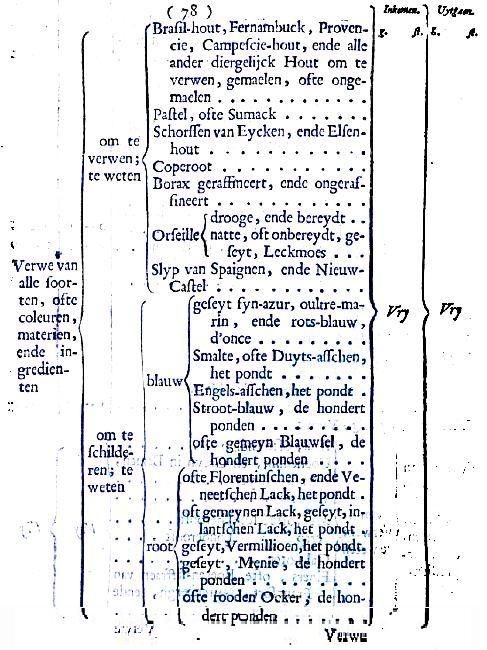 ( 78 )
Inkomen. Uytgaen.
g. st. g. st.
Verwe van
alle soor-
ten, ofte
coleuren,
materien,
ende in-
gredien-
ten
om te
verwen;
te weten
Brasil-hout, Fernambuck, Proven-
cie, Campescie-hout, ende alle
ander diergelijck Hout om te
verwen, gemaelen, ofte onge-
maelen
Pastel, ofte Sumack
Schorssen van Eycken, ende Elsen-
hout
Coperoot
Borax geraffineert, ende ongeraf-
fineert
Orseille
drooge, ende bereydt
natte, oft onbereydt, ge-
seyt, Leckmoes
Slyp van Spaignen, ende Nieuw-
Castel
om te
schilde-
ren; te
weten
blauw
geseyt fyn-azur, oultre-ma-
rin, ende rots-blauw,
d'once
Smalte, ofte Duyts-asschen,
het pondt
Engels-asschen, het pondt
Stroot-blauw, de hondert
ponden
ofte gemeyn Blauwsel, de
hondert ponden
root
ofte Florentinschen, ende Ve-
neetschen Lack, het pondt
oft gemeynen Lack, geseyt, in-
lantschen Lack, het pondt
geseyt, Vermillioen, het pondt
geseyt, Menie, de hondert
ponden
ofte rooden Ocker, de hon-
dert ponden
Vry Vry
Verwe